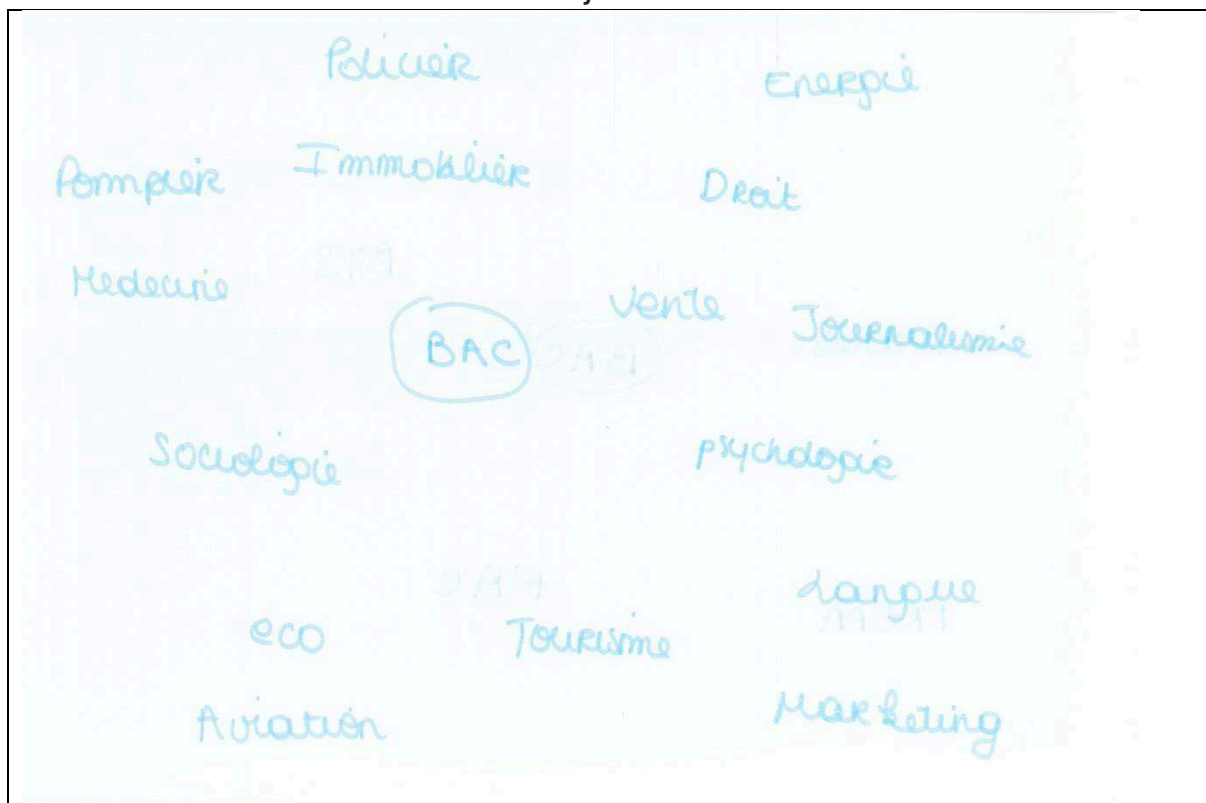 Policier
Energie
Immobilier
Pompier
Droit
Medecine
Vente
Journalisme
BAC
Sociologie
psychologie
Langue
eco
Tourisme
Aviation
Marketing